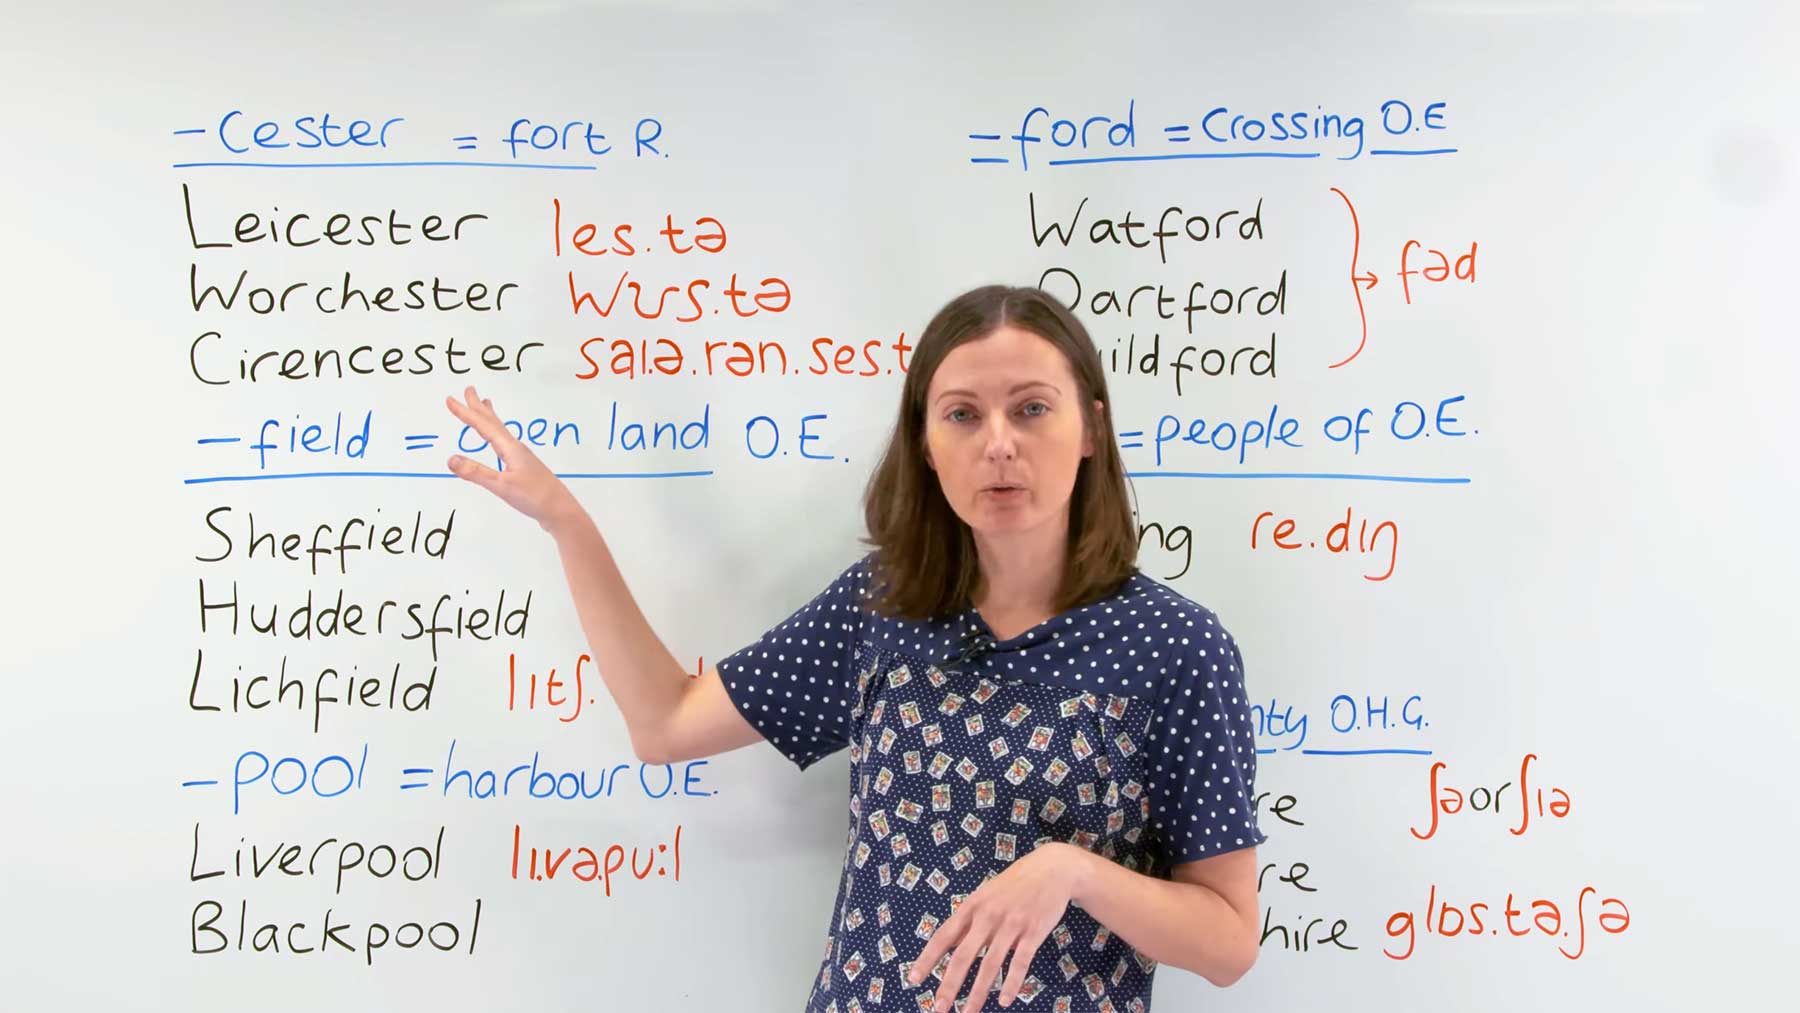 -cester = fort R.
Leicester les.tə
Worchester wʊs.tə
Cirencester saɪ.ə.rən.ses.t
-field = open land O.E.
Sheffield
Huddersfield
Lichfield lɪtʃ.
-pool = harbour O.E.
Liverpool lɪ.və.pu:l
Blackpool
-ford = crossing O.E
Watford
Dartford
uildford
fəd
= people of O.E.
ing re.dɪŋ
nty O.H.G.
re ʃə or ʃɪə
re
hire glɒs.tə.ʃə